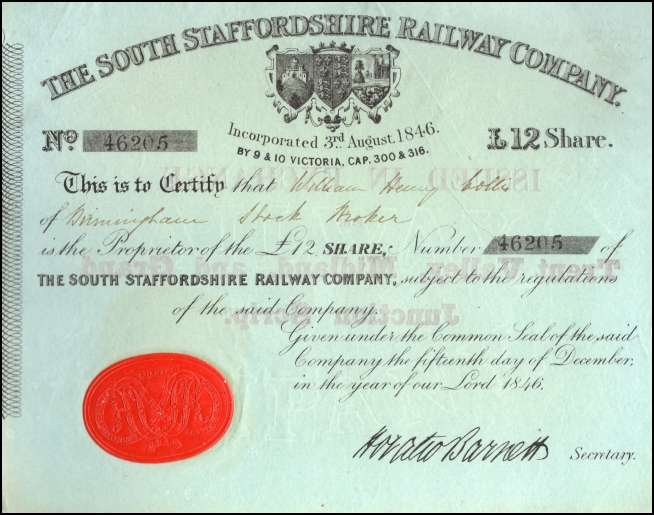 THE SOUTH STAFFORDSHIRE RAILWAY COMPANY.
Incorporated 3rd August 1846.
BY 9 & 10 VICTORIA, CAP. 300 & 316.
No. 46205
£12 Share.
This is to Certify that William Henry Cottle
of Birmingham Stock Broker
is the Proprietor of the £12 SHARE, Number 46205 of
THE SOUTH STAFFORDSHIRE RAILWAY COMPANY, subject to the regulations
of the said Company.
Given under the Common Seal of the said
Company the fifteenth day of December,
in the year of our Lord 1846.
Horatio Barnett Secretary.
ISSUED IN EXCHANGE
Trent Valley, Midlands and Grand
Junction Scrip.